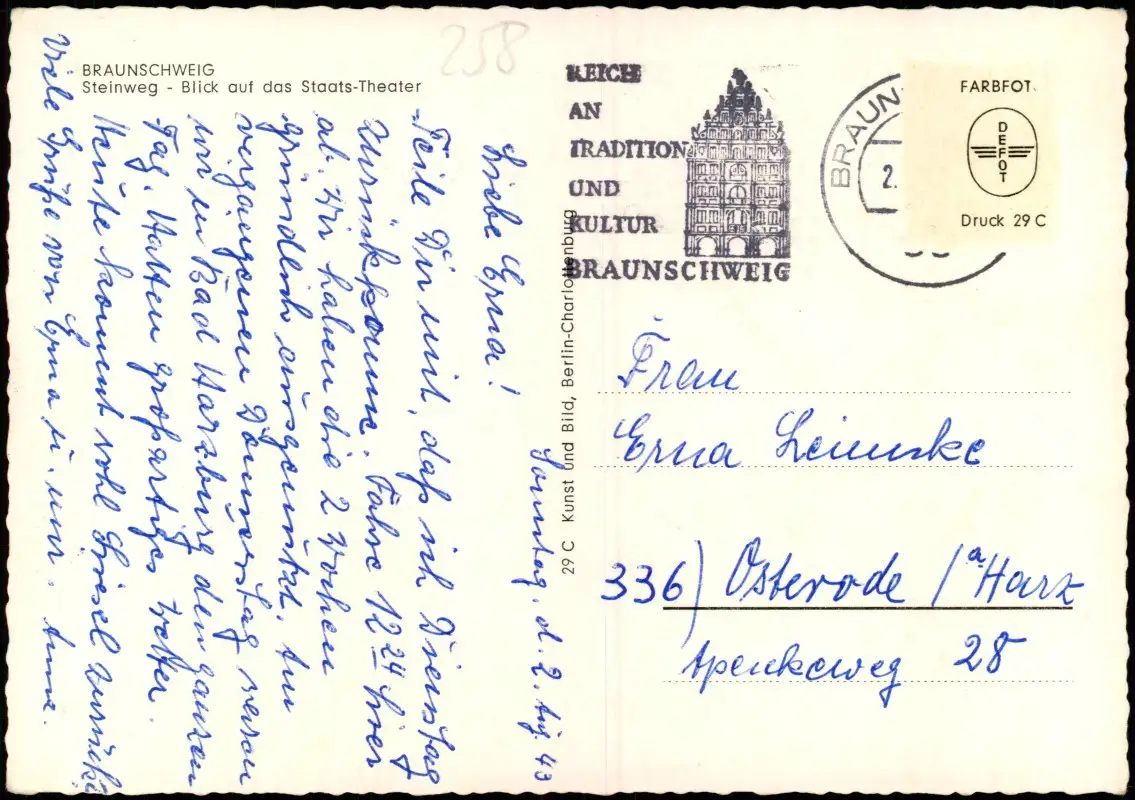 258
BRAUNSCHWEIG
Steinweg - Blick auf das Staats-Theater
Sonntag, d. 2. Aug. 43
Liebe Erna!
Teile Dir mit, daß ich Dienstag
zurückkomme. Fahre 12 24 hier
ab. Wir haben die 2 Wochen
gründlich ausgenutzt. Am
vergangenen Donnerstag waren
wir in Bad Harzburg den ganzen
Tag. Hatten großartiges Wetter.
Heute kommt wohl Giesel zurück.
Viele Grüße von Erna u. mir. Anna.
29 C Kunst und Bild, Berlin-Charlottenburg
REICH
AN
TRADITION
UND
KULTUR
BRAUNSCHWEIG
BRAUN
2.
FARBFOT
DEFOT
Druck 29 C
Frau
Erna
336) Osterode /a Harz
28